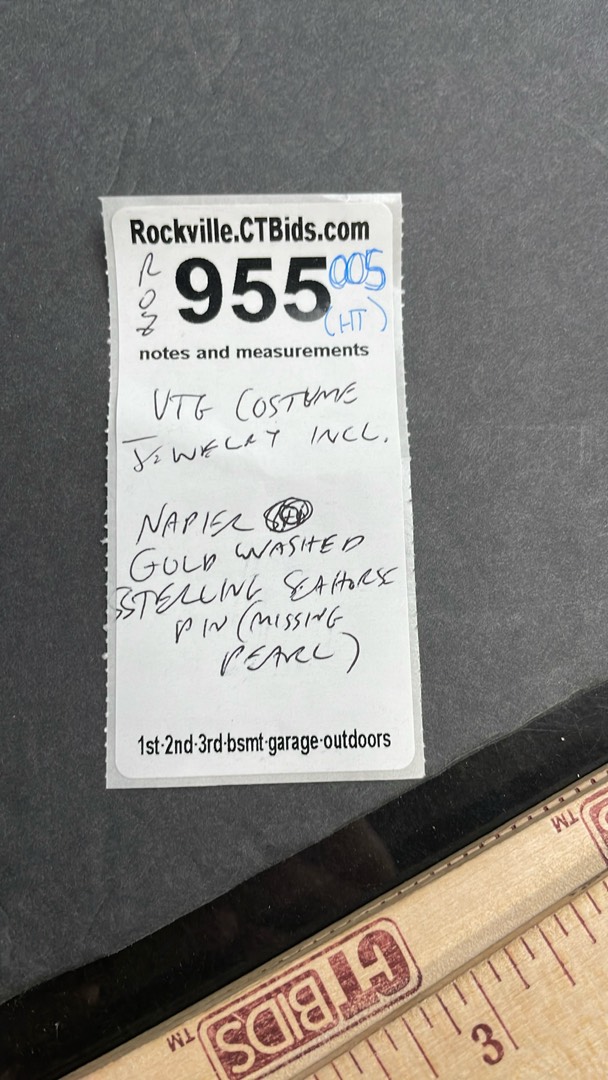 Rockville.CTBids.com
ROZ
955 005
(HT)
notes and measurements
VTG COSTUME
JEWELRY INCL.
NAPIER
GOLD WASHED
STERLING SEAHORSE
PIN (MISSING
PEARL)
1st-2nd-3rd-bsmt-garage-outdoors
TM
CTBIDS
TM
3